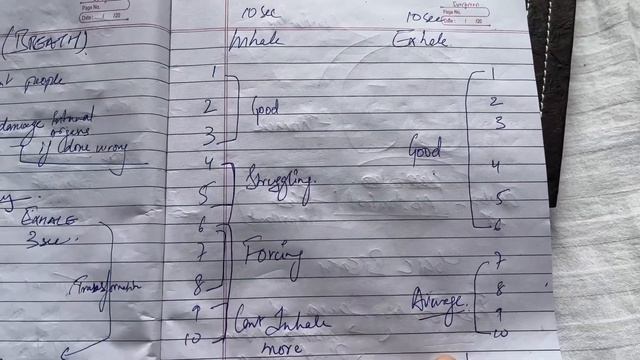 Page No.
Date: / /20
Evergreen
Page No.
Date: / /20
(BREATH)
people
damage internal
organs
if done wrong
EXHALE
3 sec.
10 sec
Inhale
1
2
3
Good
4
5
Struggling
6
7
8
Forcing
9
10
Can't Inhale
more
10 sec
Exhale
1
2
3
4
5
6
Good
7
8
9
10
Average.